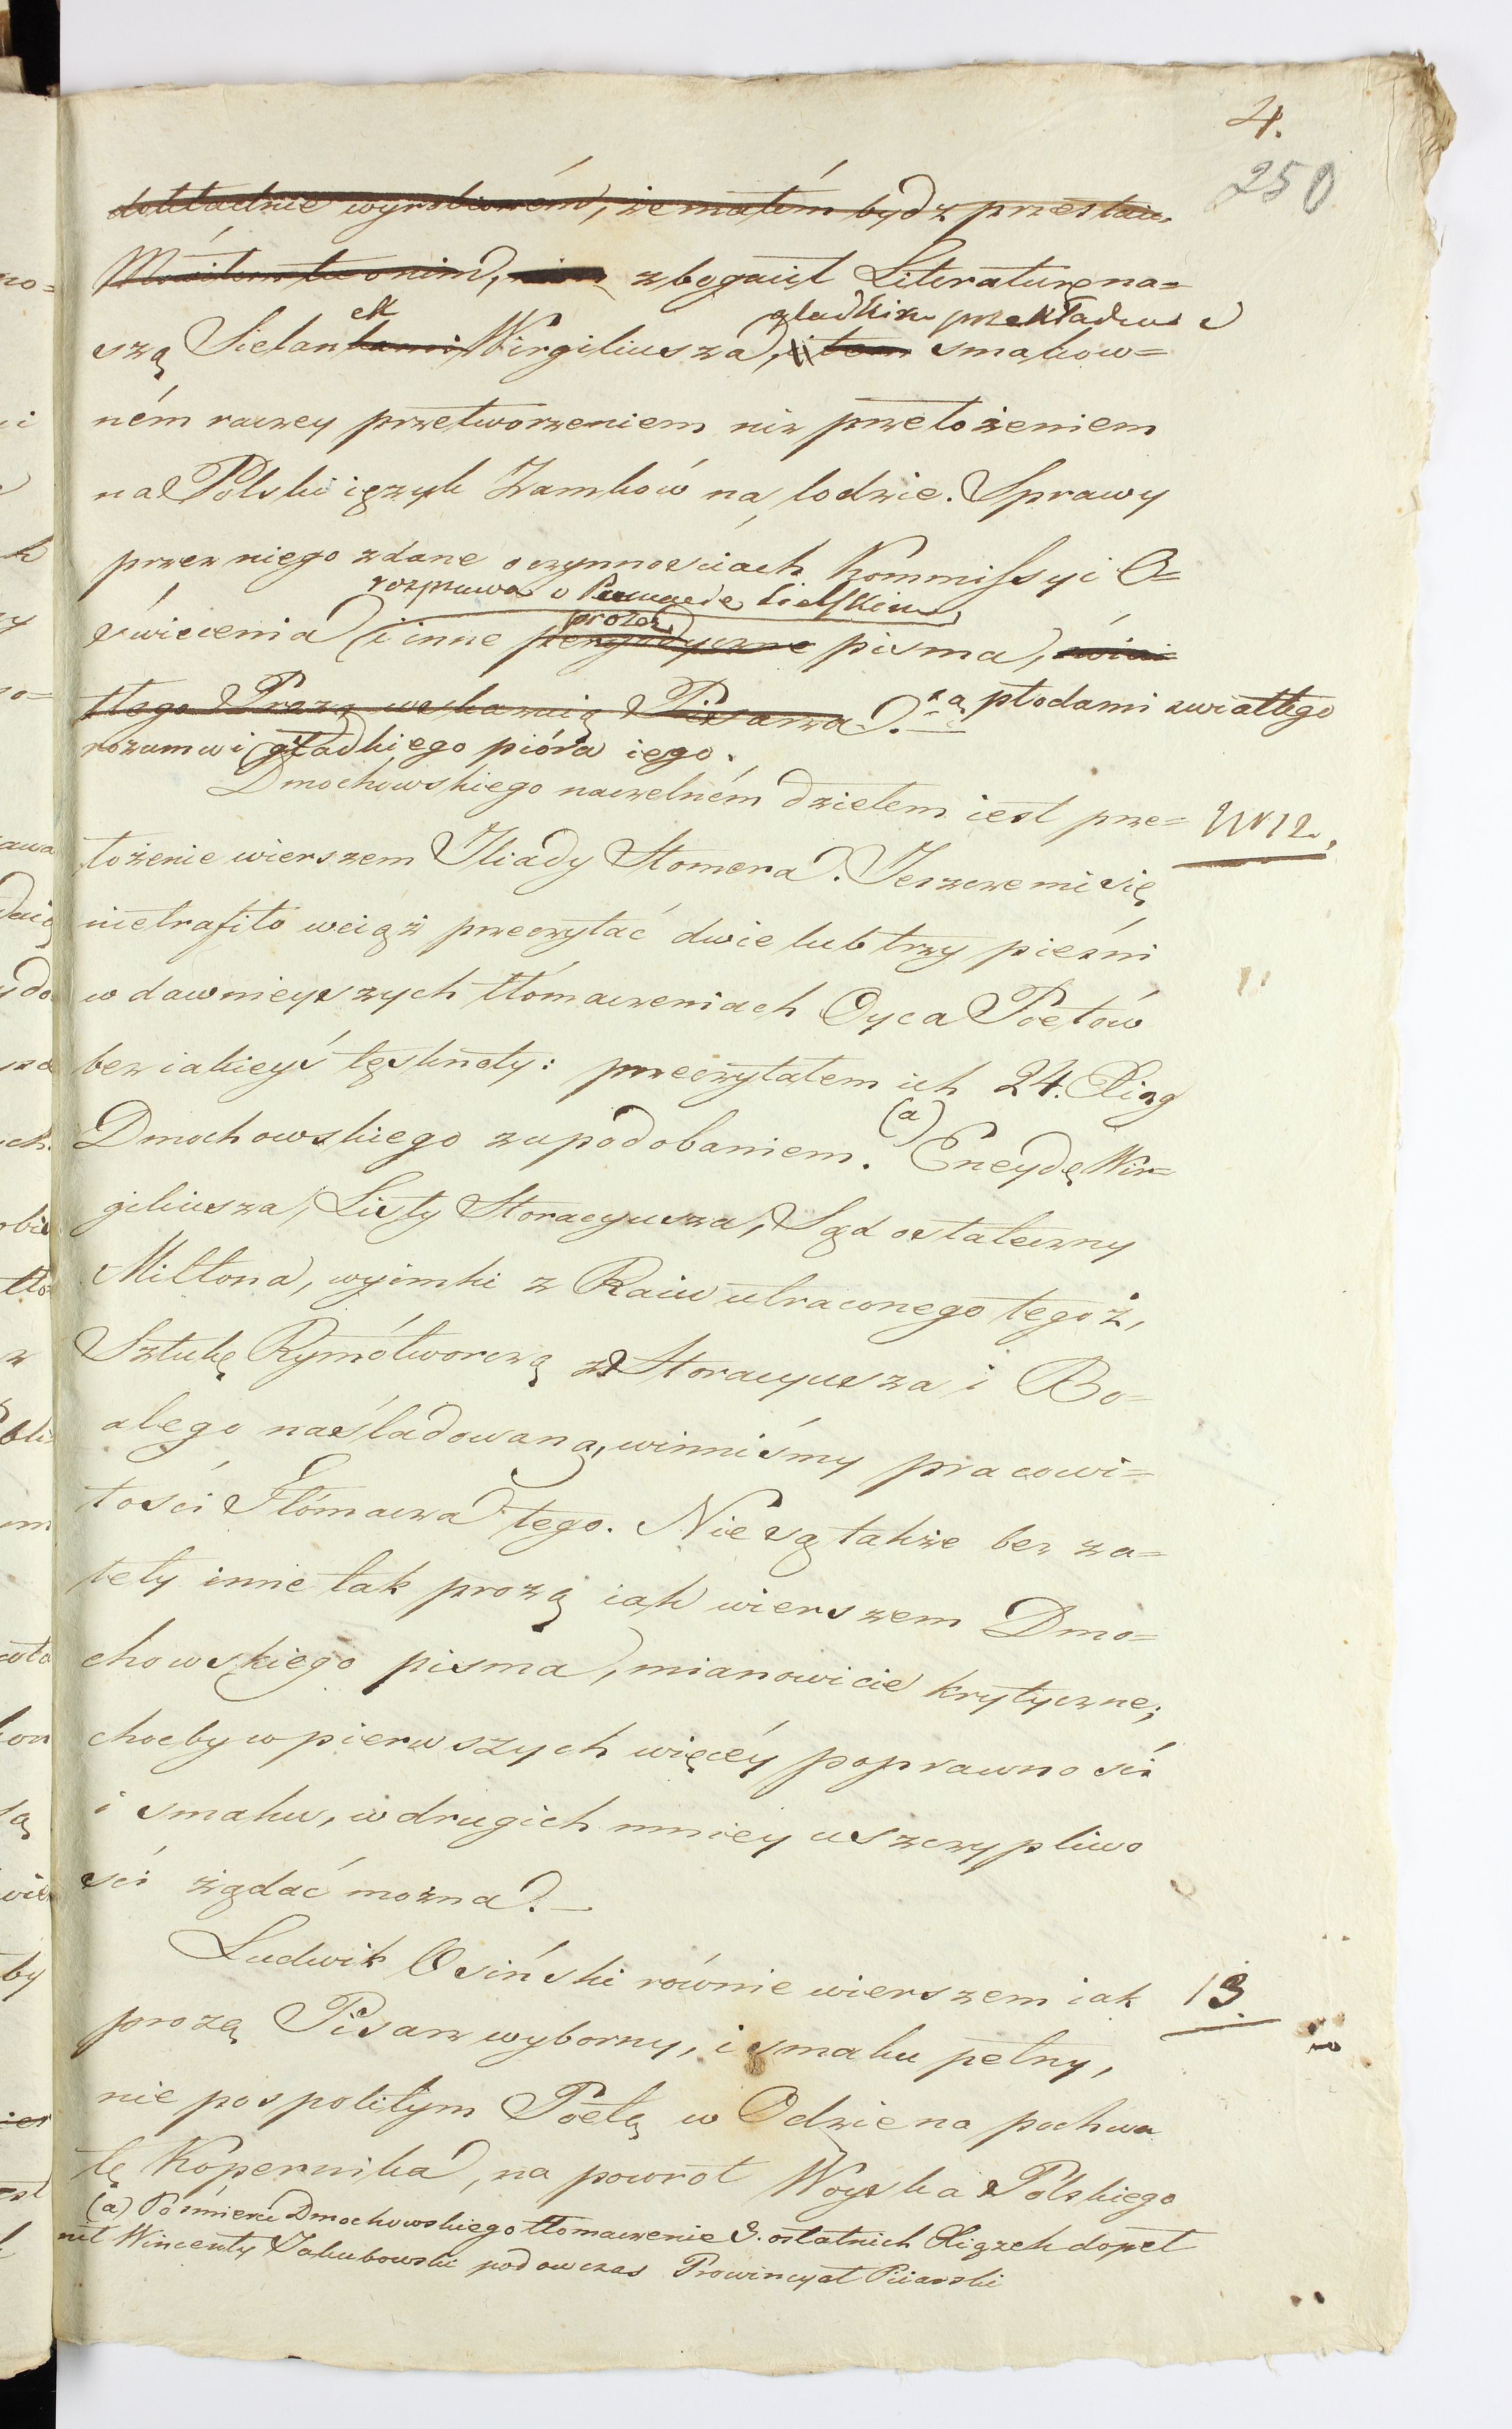 4.
250
dokładnie wyrobioném, że małém bydź przestaie,
Mówiłem tu o nim, zbogacił Literaturę na=
ek gładkim przekładem
szą Sielankami Wirgiliusza, i tem smakow=
ném raczey przetworzeniem niż przełożeniem
na Polski ięzyk Zamków na lodzie. Sprawy
przez niego zdane o czynnościach Kommissyi O=
rozprawa o Powadze Sielskim
prozą
świecenia i inne peryodyczne pisma, świa=
tłego Prozą wskazuią Pisarza. są płodami światłego
rozumu i gładkiego pióra iego.
Dmochowskiego naczelném dziełem iest prze= N 12.
łożenie wierszem Iliady Homera. Jeszcze mi się
nietrafiło wciąż przeczytać dwie lub trzy pieśni
w dawnieyszych tłómaczeniach Oyca Poetów
bez iakieyś tęsknoty: przeczytałem ich 24. Xiąg
Dmochowskiego z upodobaniem. (a) Eneydę Wir=
giliusza, Listy Horacyusza, Sąd ostateczny
Miltona, wyimki z Raiu utraconego tegoż,
Sztukę Rymótworczą z Horacyusza i Bo=
alego naśladowaną, winniśmy pracowi=
tości Tłómacza tego. Nie są także bez za=
lety inne tak prozą iak wierszem Dmo=
chowskiego pisma, mianowicie krytyczne;
choćby w pierwszych więcéy poprawności
i smaku, w drugich mniey uszczypliwo
ści żądać można. —
Ludwik Osiński równie wierszem iak 13.
prozą Pisarz wyborny, i smaku pełny,
nie pospolitym Poetą w Odzie na pochwa
łę Kopernika, na powrót Woyska Polskiego
(a) Po śmierci Dmochowskiego tłomaczenie 3. ostatnich Xiążek dopeł
nił Wincenty Jakubowski podówczas Prowincyał Piiarski